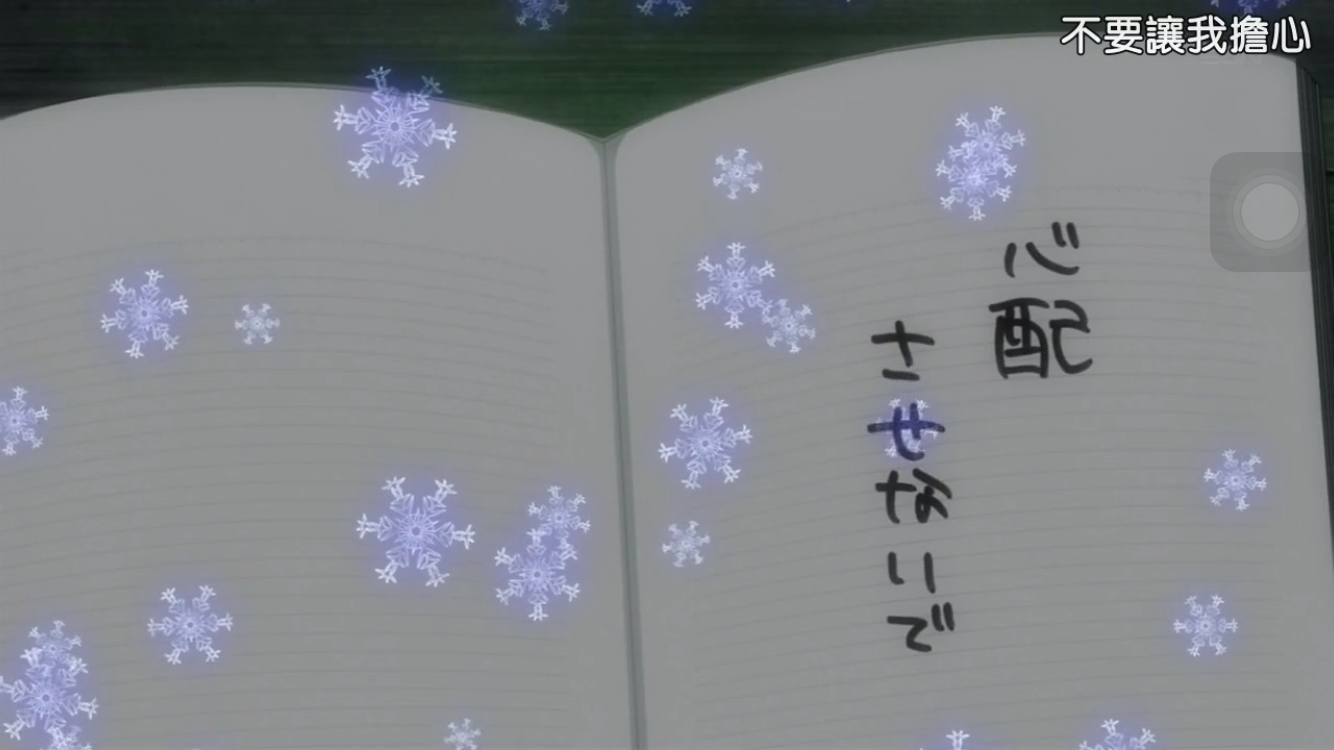 不要讓我擔心
心配
させないで